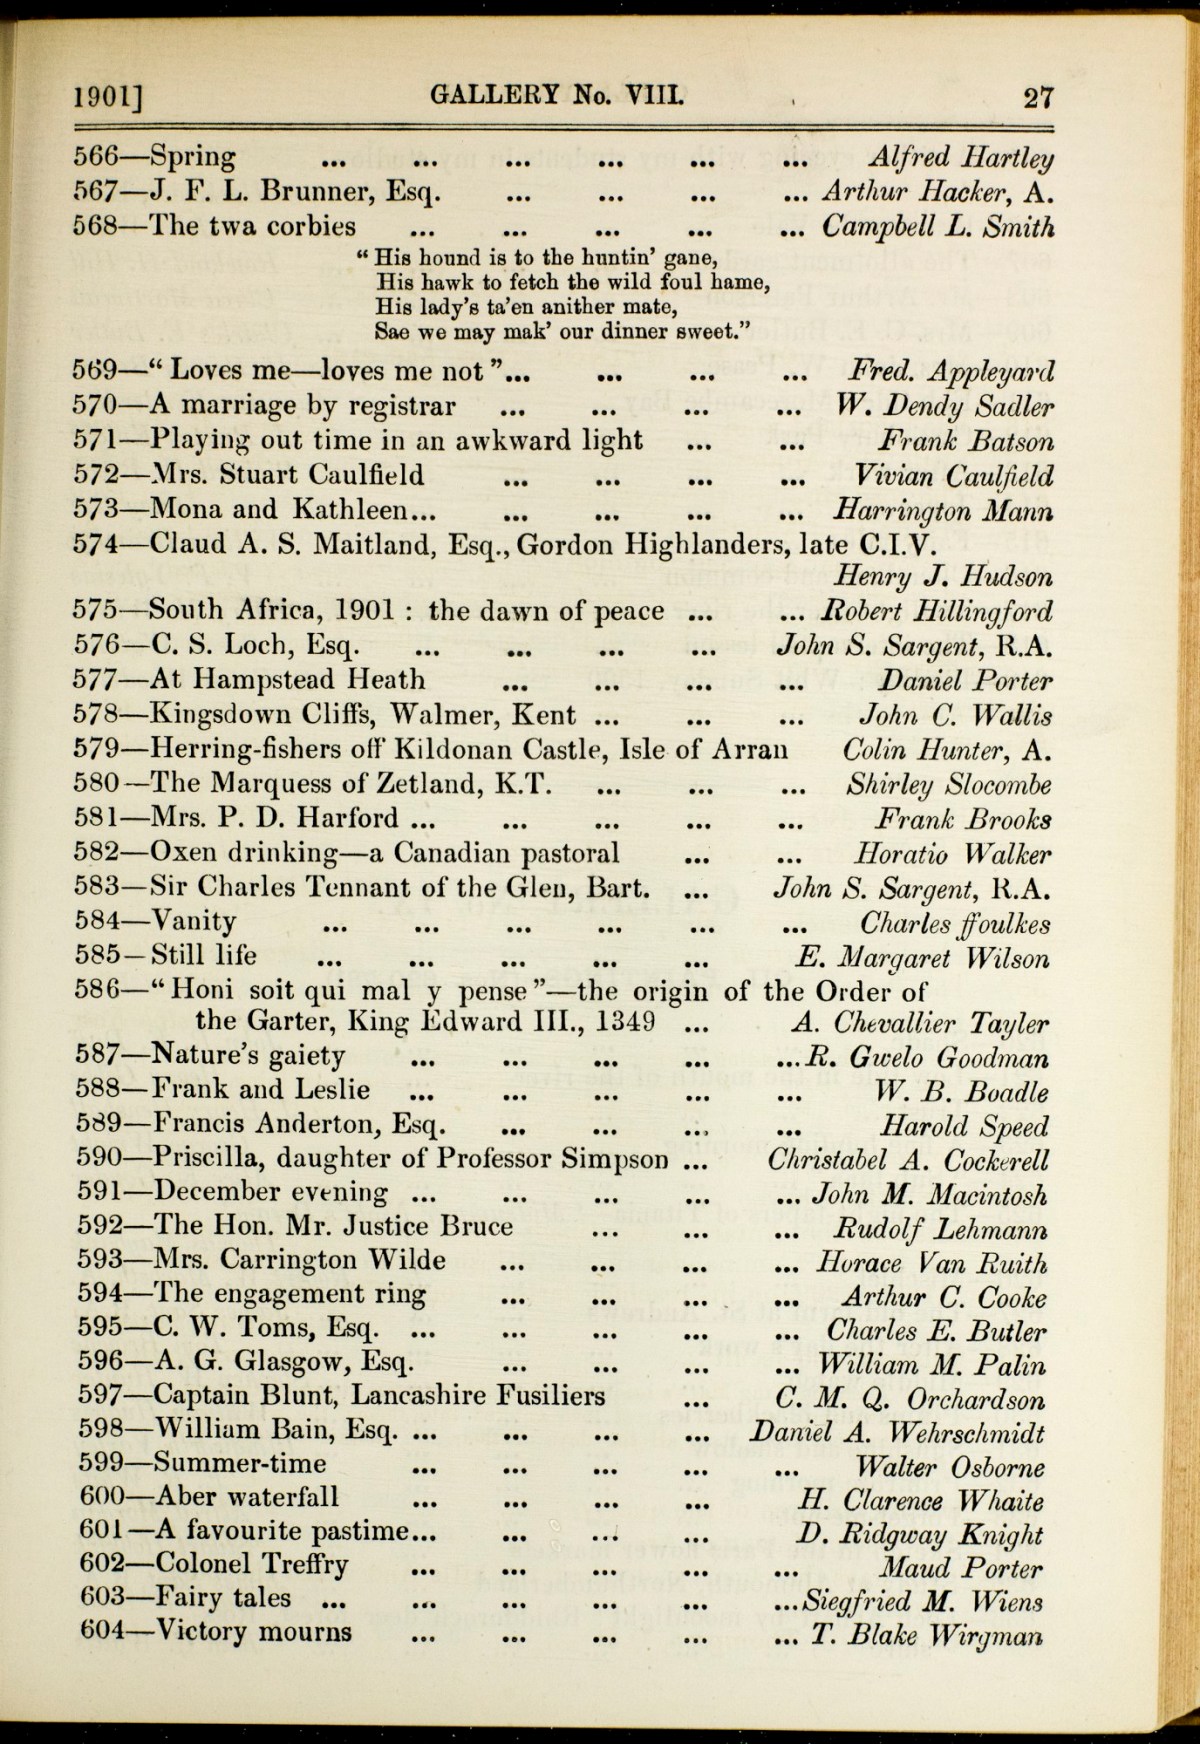 1901] GALLERY No. VIII. 27
566—Spring ... ... ... ... ... ... Alfred Hartley
567—J. F. L. Brunner, Esq. ... ... ... ... Arthur Hacker, A.
568—The twa corbies ... ... ... ... ... Campbell L. Smith
“ His hound is to the huntin’ gane,
His hawk to fetch the wild foul hame,
His lady’s ta’en anither mate,
Sae we may mak’ our dinner sweet.”
569—“ Loves me—loves me not ”... ... ... ... Fred. Appleyard
570—A marriage by registrar ... ... ... ... W. Dendy Sadler
571—Playing out time in an awkward light ... ... Frank Batson
572—Mrs. Stuart Caulfield ... ... ... ... Vivian Caulfield
573—Mona and Kathleen... ... ... ... ... Harrington Mann
574—Claud A. S. Maitland, Esq., Gordon Highlanders, late C.I.V.
Henry J. Hudson
575—South Africa, 1901 : the dawn of peace ... ... Robert Hillingford
576—C. S. Loch, Esq. ... ... ... ... John S. Sargent, R.A.
577—At Hampstead Heath ... ... ... ... Daniel Porter
578—Kingsdown Cliffs, Walmer, Kent ... ... ... John C. Wallis
579—Herring-fishers off Kildonan Castle, Isle of Arran Colin Hunter, A.
580—The Marquess of Zetland, K.T. ... ... ... Shirley Slocombe
581—Mrs. P. D. Harford ... ... ... ... ... Frank Brooks
582—Oxen drinking—a Canadian pastoral ... ... Horatio Walker
583—Sir Charles Tennant of the Glen, Bart. ... John S. Sargent, R.A.
584—Vanity ... ... ... ... ... ... Charles ffoulkes
585—Still life ... ... ... ... ... E. Margaret Wilson
586—“ Honi soit qui mal y pense ”—the origin of the Order of
the Garter, King Edward III., 1349 ... A. Chevallier Tayler
587—Nature’s gaiety ... ... ... ... ...R. Gwelo Goodman
588—Frank and Leslie ... ... ... ... ... W. B. Boadle
589—Francis Anderton, Esq. ... ... ... ... Harold Speed
590—Priscilla, daughter of Professor Simpson ... Christabel A. Cockerell
591—December evening ... ... ... ... ... John M. Macintosh
592—The Hon. Mr. Justice Bruce ... ... ... Rudolf Lehmann
593—Mrs. Carrington Wilde ... ... ... ... Horace Van Ruith
594—The engagement ring ... ... ... ... Arthur C. Cooke
595—C. W. Toms, Esq. ... ... ... ... ... Charles E. Butler
596—A. G. Glasgow, Esq. ... ... ... ... William M. Palin
597—Captain Blunt, Lancashire Fusiliers ... C. M. Q. Orchardson
598—William Bain, Esq. ... ... ... ... Daniel A. Wehrschmidt
599—Summer-time ... ... ... ... ... Walter Osborne
600—Aber waterfall ... ... ... ... H. Clarence Whaite
601—A favourite pastime... ... ... ... D. Ridgway Knight
602—Colonel Treffry ... ... ... ... ... Maud Porter
603—Fairy tales ... ... ... ... ... ...Siegfried M. Wiens
604—Victory mourns ... ... ... ... ... T. Blake Wirgman